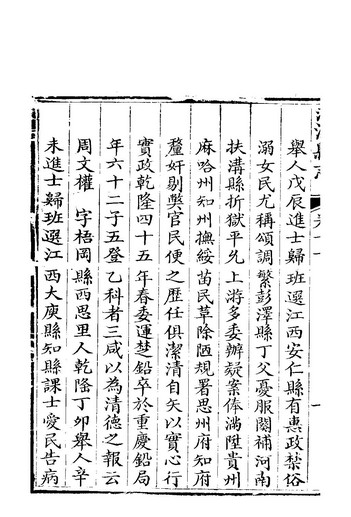 舉人戊辰進士歸班選江西安仁縣有惠政禁俗
溺女民尤稱頌調繁彭澤縣丁父憂服闋補河南
扶溝縣折獄平允上游多委辦疑案俸滿陞貴州
麻哈州知州撫綏苗民革除陋規署思州府知府
釐奸剔弊官民便之歷任俱潔清自矢以實心行
實政乾隆四十五年春委運楚鉛卒於重慶鉛局
年六十二子五登乙科者三咸以為清德之報云
周文權 字梧岡縣西思里人乾隆丁卯舉人辛
未進士歸班選江西大庾縣知縣課士愛民告病